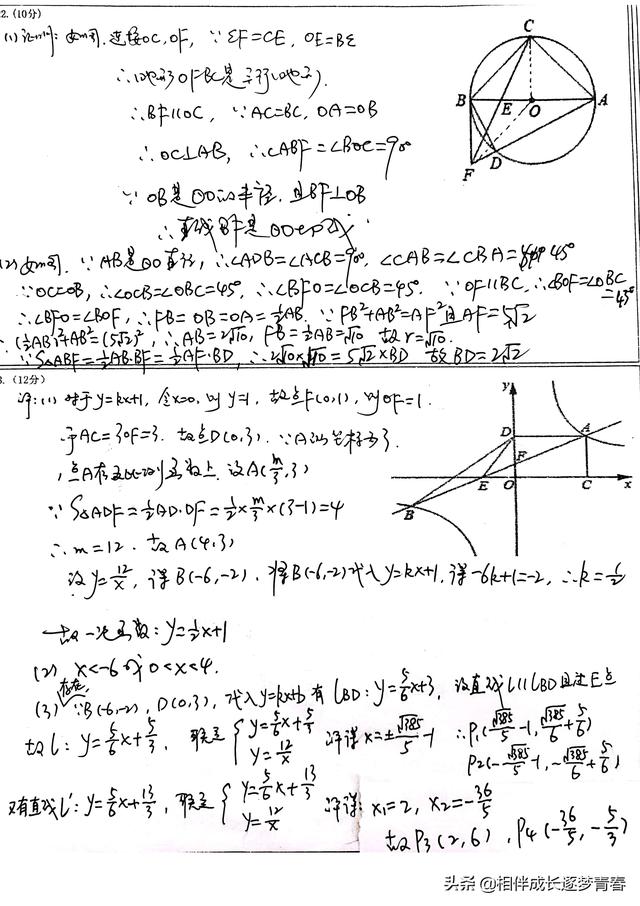 22.(10分)
(1)证明:如图,连接OC,OF,∵EF=CE,OE=BE
∴四边形OFBC是平行四边形.
∴BF∥OC,∵AC=BC,OA=OB
∴OC⊥AB,∴∠ABF=∠BOC=90°
∵OB是⊙O的半径,且BF⊥OB
∴直线BF是⊙O的切线
C
B E O A
D
F
(2)如图.∵AB是⊙O直径,∴∠ADB=∠ACB=90°,∠CAB=∠CBA=45°
∵OC=OB,∴∠OCB=∠OBC=45°,∴∠BFO=∠OCB=45°.∵OF∥BC,∴∠BOF=∠OBC=45°
∴∠BFO=∠BOF,∴FB=OB=OA=½AB.∵FB²+AB²=AF²且AF=5√2
∴(½AB)²+AB²=(5√2)²,∴AB=2√10,FB=½AB=√10 故r=√10.
∵S△ABF=½AB·BF=½AF·BD,∴2√10×√10=5√2×BD 故BD=2√2
3.(12分)
解:(1)对于y=kx+1,令x=0,则y=1,故点F(0,1),则OF=1.
于AC=3OF=3.故点D(0,3).∵A的纵坐标为3,
,点A在反比例函数上.设A(m/3,3)
∵S△ADF=½AD·DF=½×m/3×(3-1)=4
∴m=12.故A(4,3)
y
D A
F
E O C x
B
设y=12/x,得B(-6,-2).将B(-6,-2)代入y=kx+1,得-6k+1=-2,∴k=½
故一次函数:y=½x+1
(2) x<-6或0<x<4.
(3)存在 ∵B(-6,-2),D(0,3),代入y=kx+b有lBD:y=5/6x+3,设直线l∥lBD且过E点
故l:y=5/6x+5/3,联立{y=5/6x+5/3 y=12/x 解得x=±√385/5-1 ∴P₁(√385/5-1,√385/6+5/6)
P₂(-√385/5-1,-√385/6+5/6)
又有直线l':y=5/6x+13/3,联立{y=5/6x+13/3 y=12/x 解得:x₁=2,x₂=-36/5
故P₃(2,6),P₄(-36/5,-5/3)
头条 @相伴成长逐梦青春